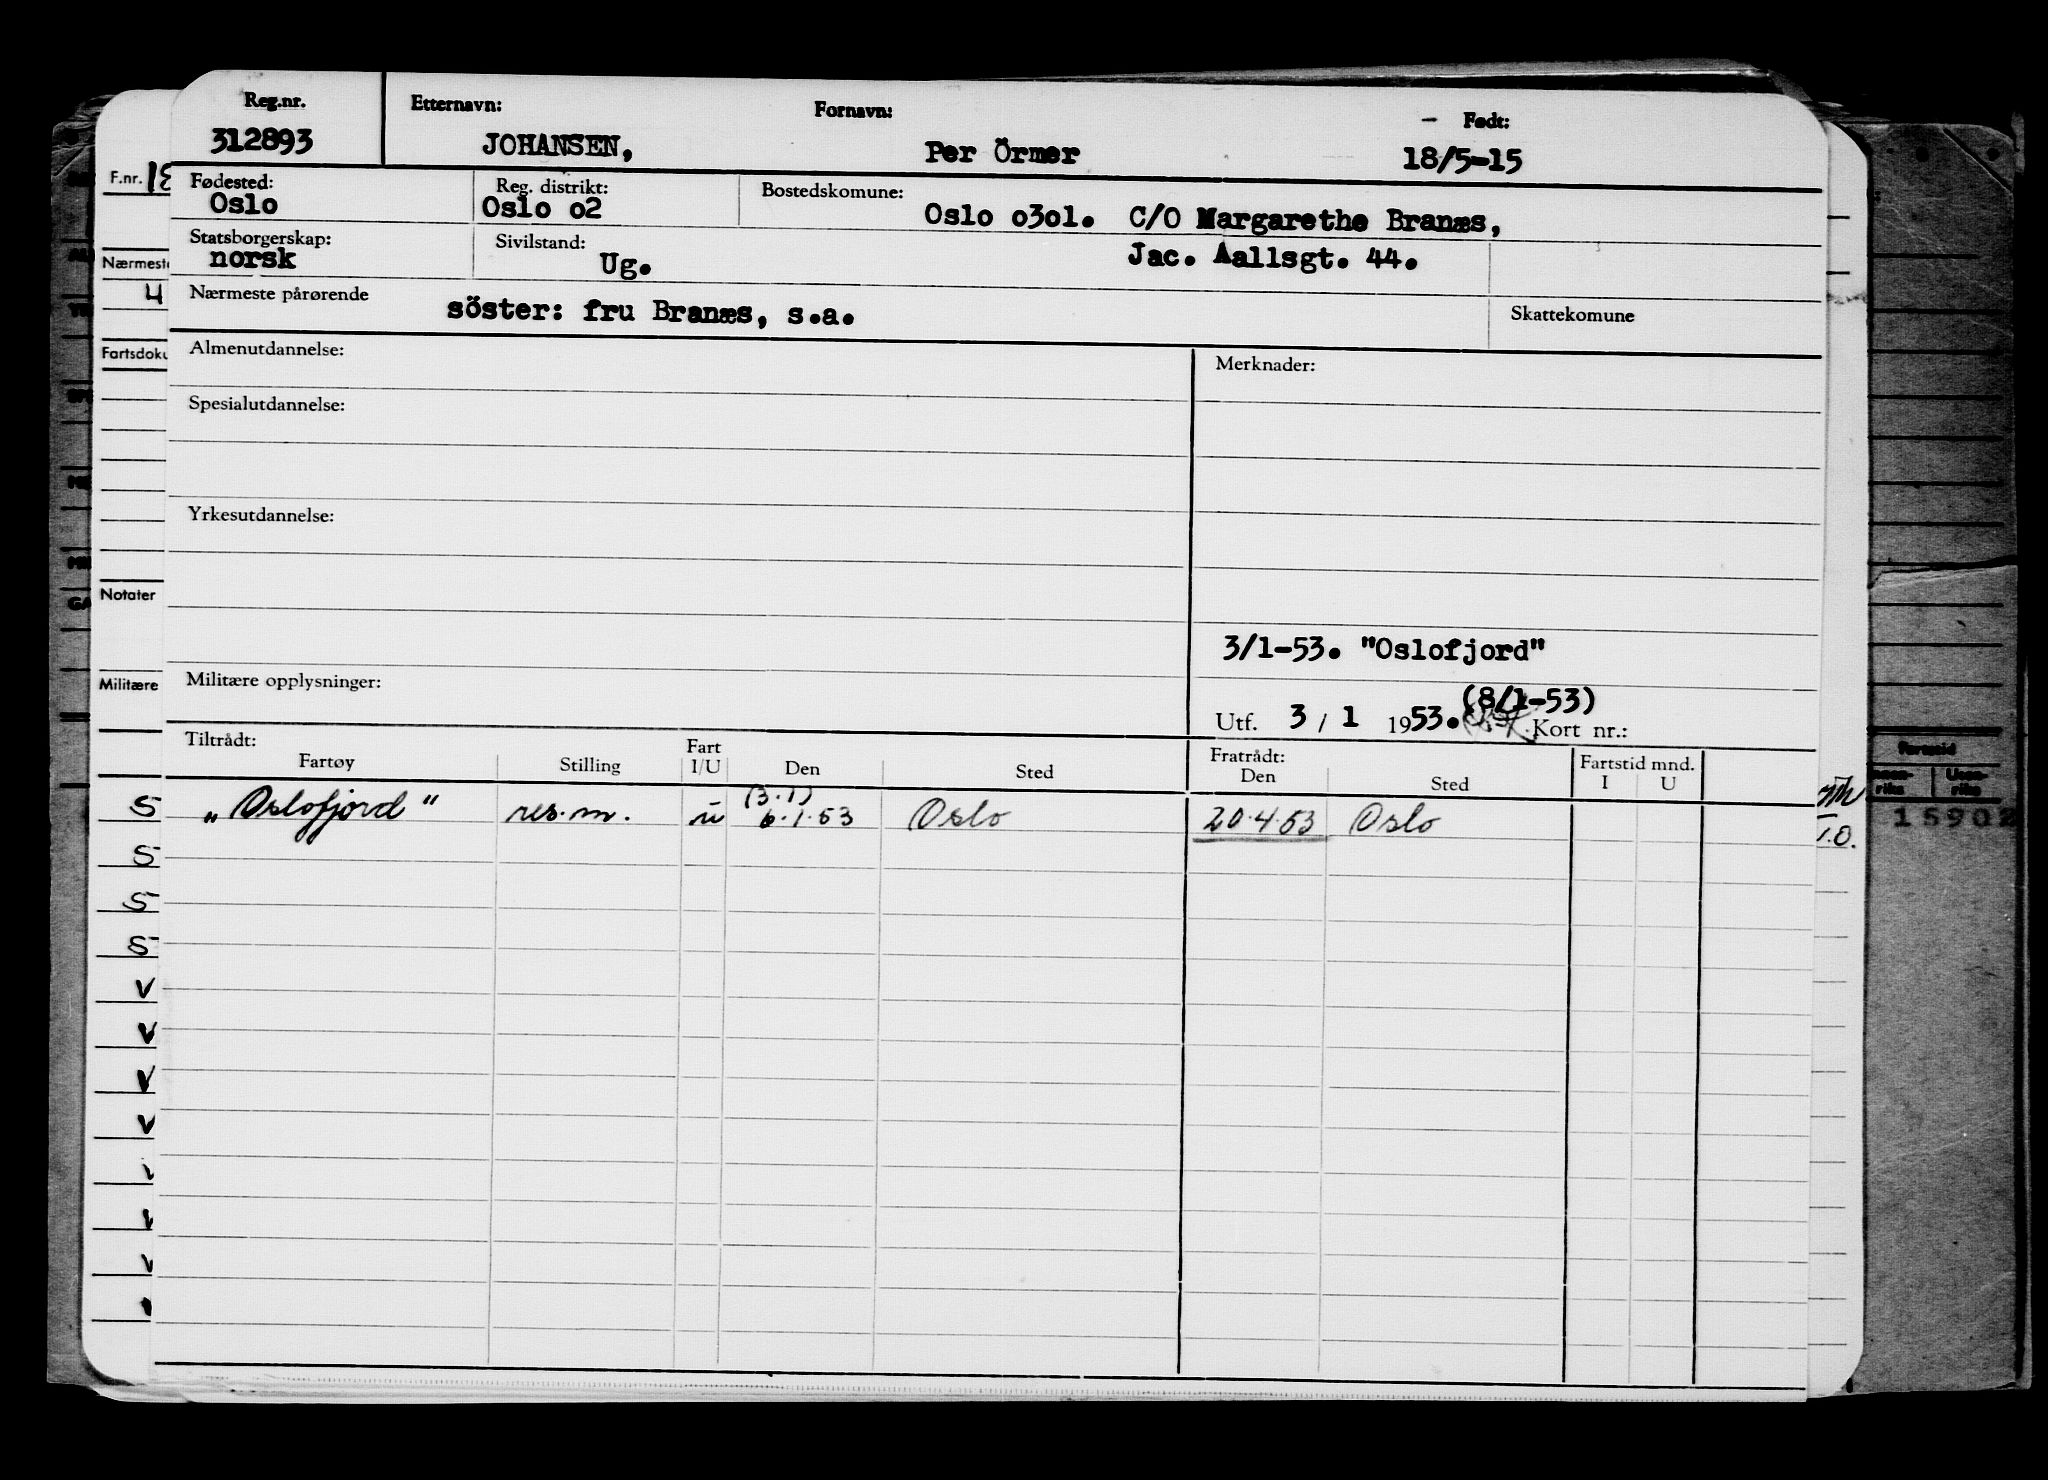 Reg.nr. Etternavn: Fornavn: Født:
312893 JOHANSEN, Per Örmer 18/5-15
F.nr. 18 Fødested: Reg. distrikt: Bostedskomune:
Oslo Oslo o2 Oslo o3o1. C/O Margarethe Branæs,
Statsborgerskap: Sivilstand: Jac. Aallsgt. 44.
Nærmeste norsk Ug.
4 Nærmeste pårørende söster: fru Branæs, s.a. Skattekomune
Fartsdoku Almenutdannelse: Merknader:
Spesialutdannelse:
Yrkesutdannelse:
Notater
3/1-53. "Oslofjord"
Militære Militære opplysninger: (8/1-53)
Utf. 3 / 1 1953. Kort nr.:
Tiltrådt: Fart Fratrådt: Fartstid mnd. Fartstid
Fartøy Stilling I/U Den Sted Den Sted I U
S „Oslofjord" res.m. u (3.1) 6.1.53 Oslo 20.4.53 Oslo 15902
S
S
S
V
V
V
V
V
V
V
V